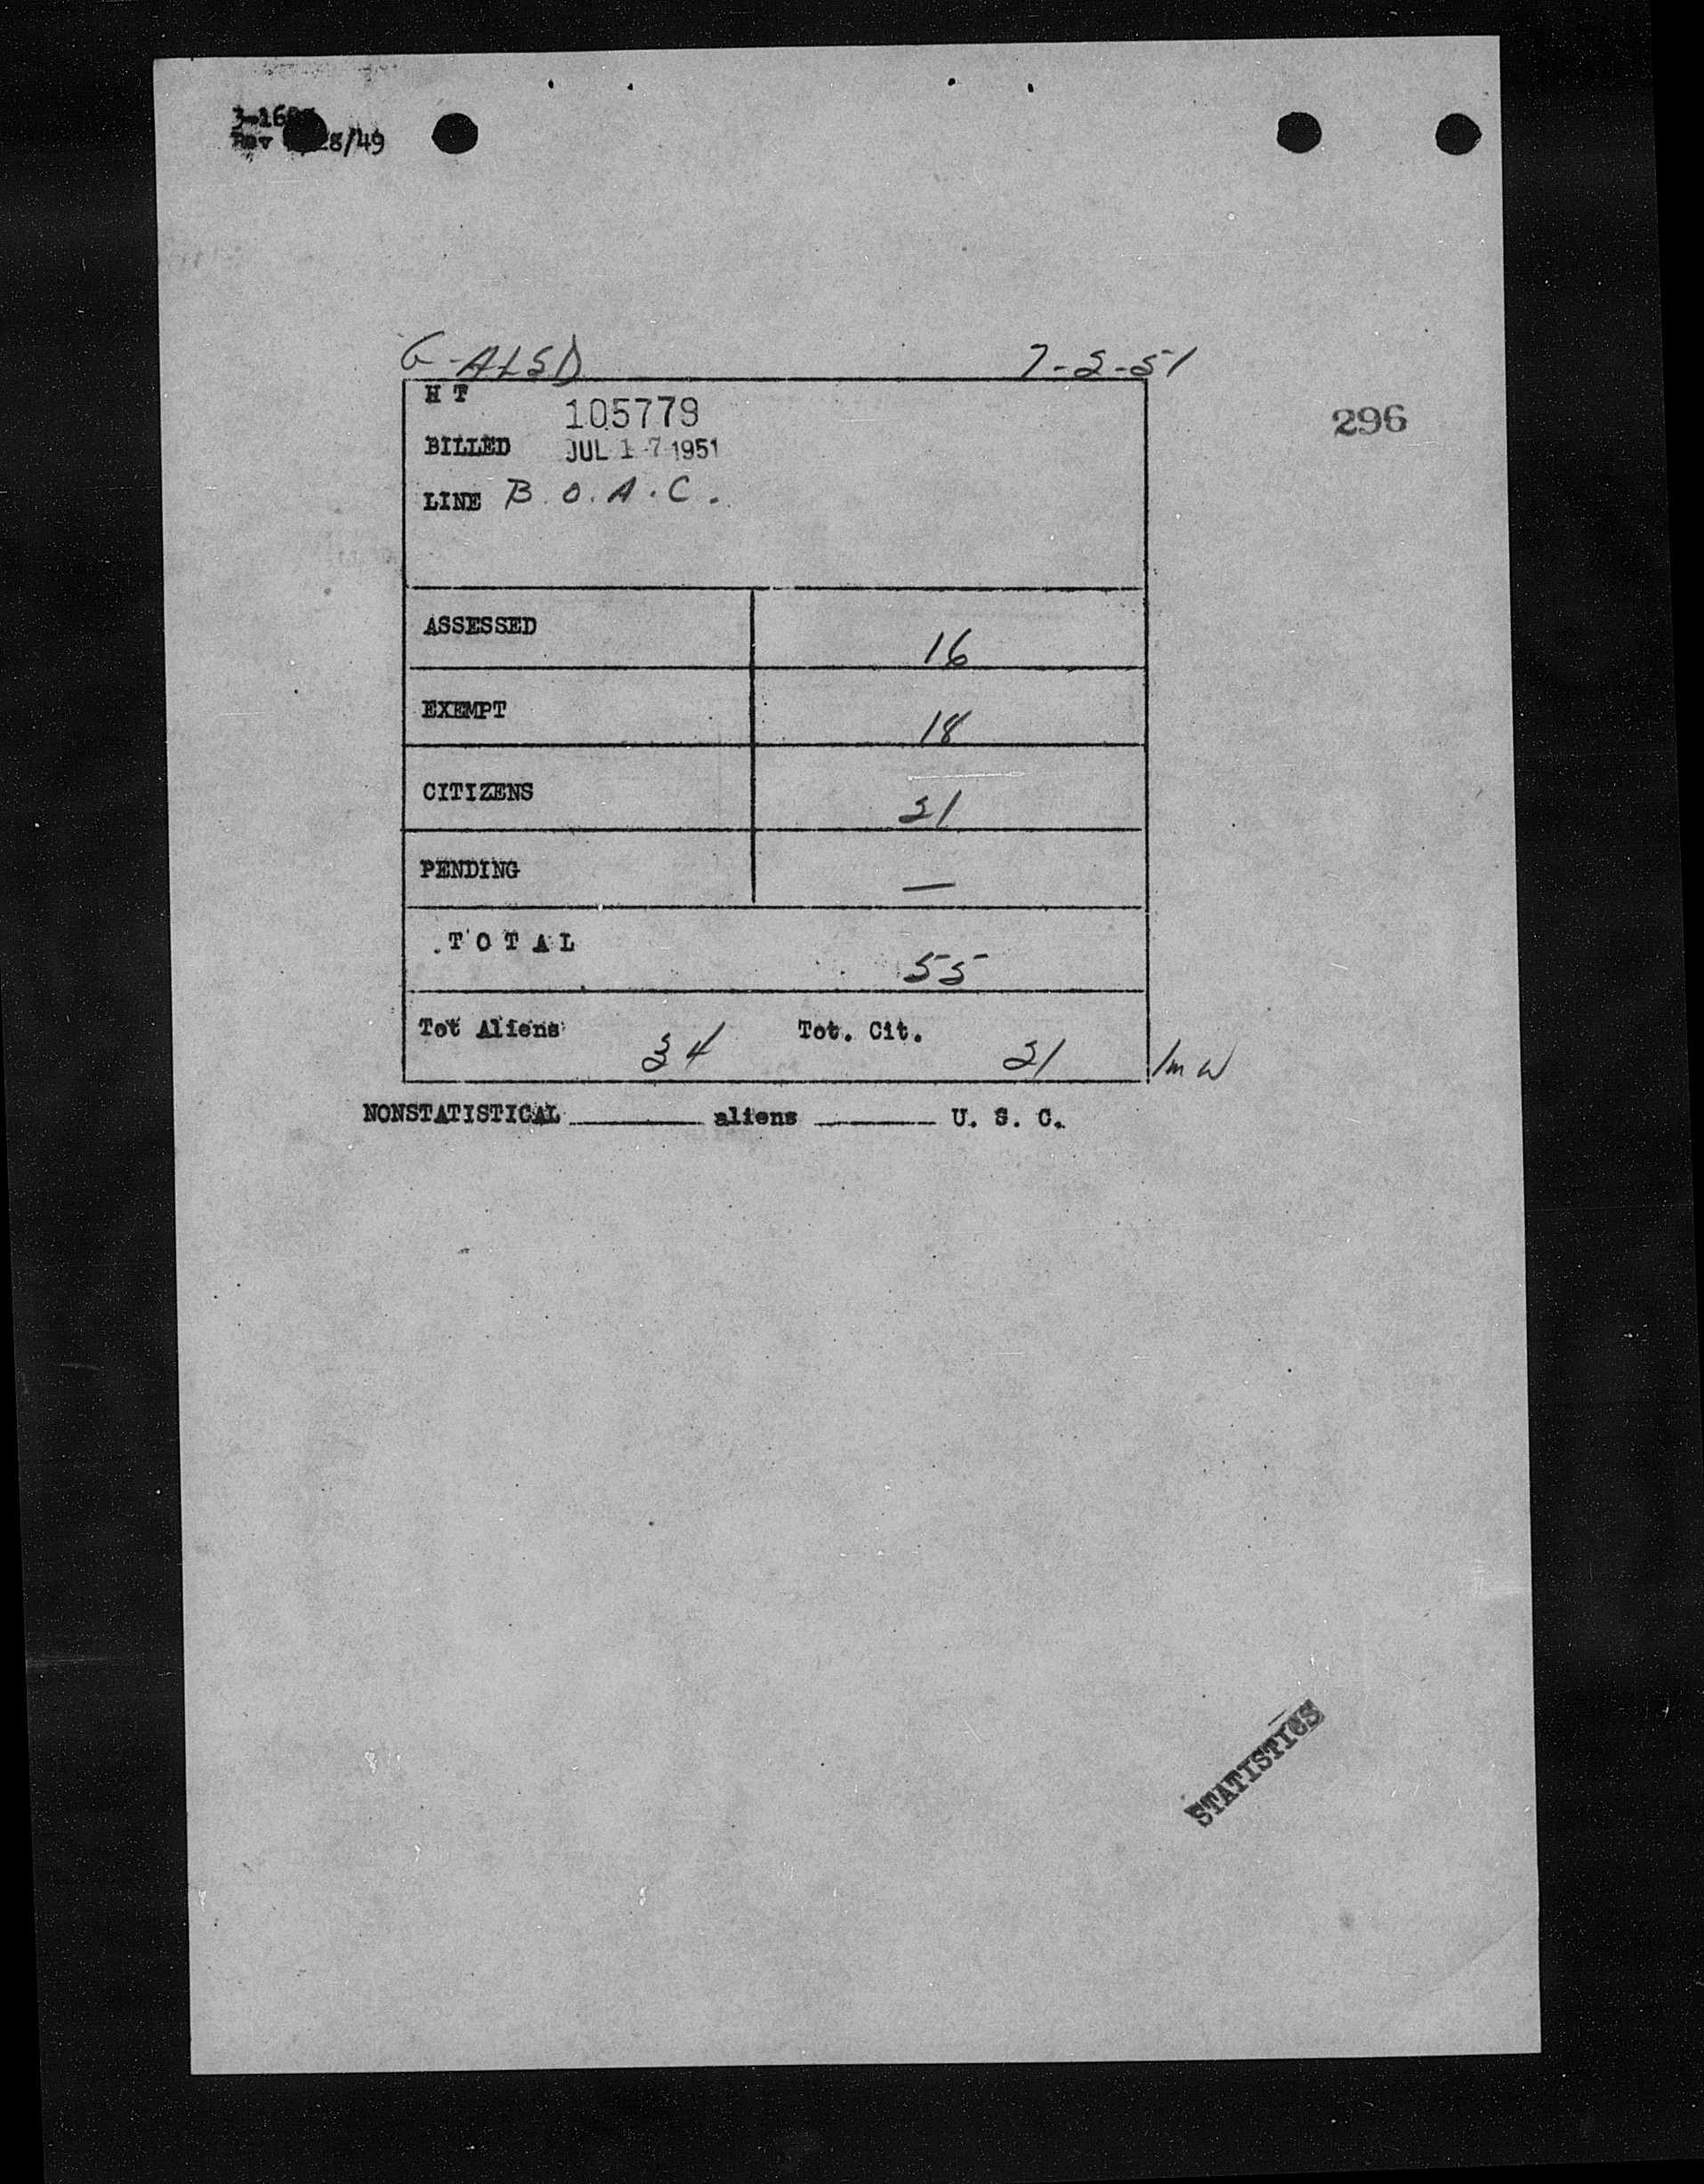 3-16
Rev 28/49
G-ALSD 7-2-51
H T 105779
296
BILLED JUL 17 1951
LINE B.O.A.C.
ASSESSED 16
EXEMPT 18
CITIZENS 21
PENDING —
TOTAL 55
Tot Aliens 34 Tot. Cit. 21 /mw
NONSTATISTICAL ______ aliens ______ U. S. C.
STATISTICS